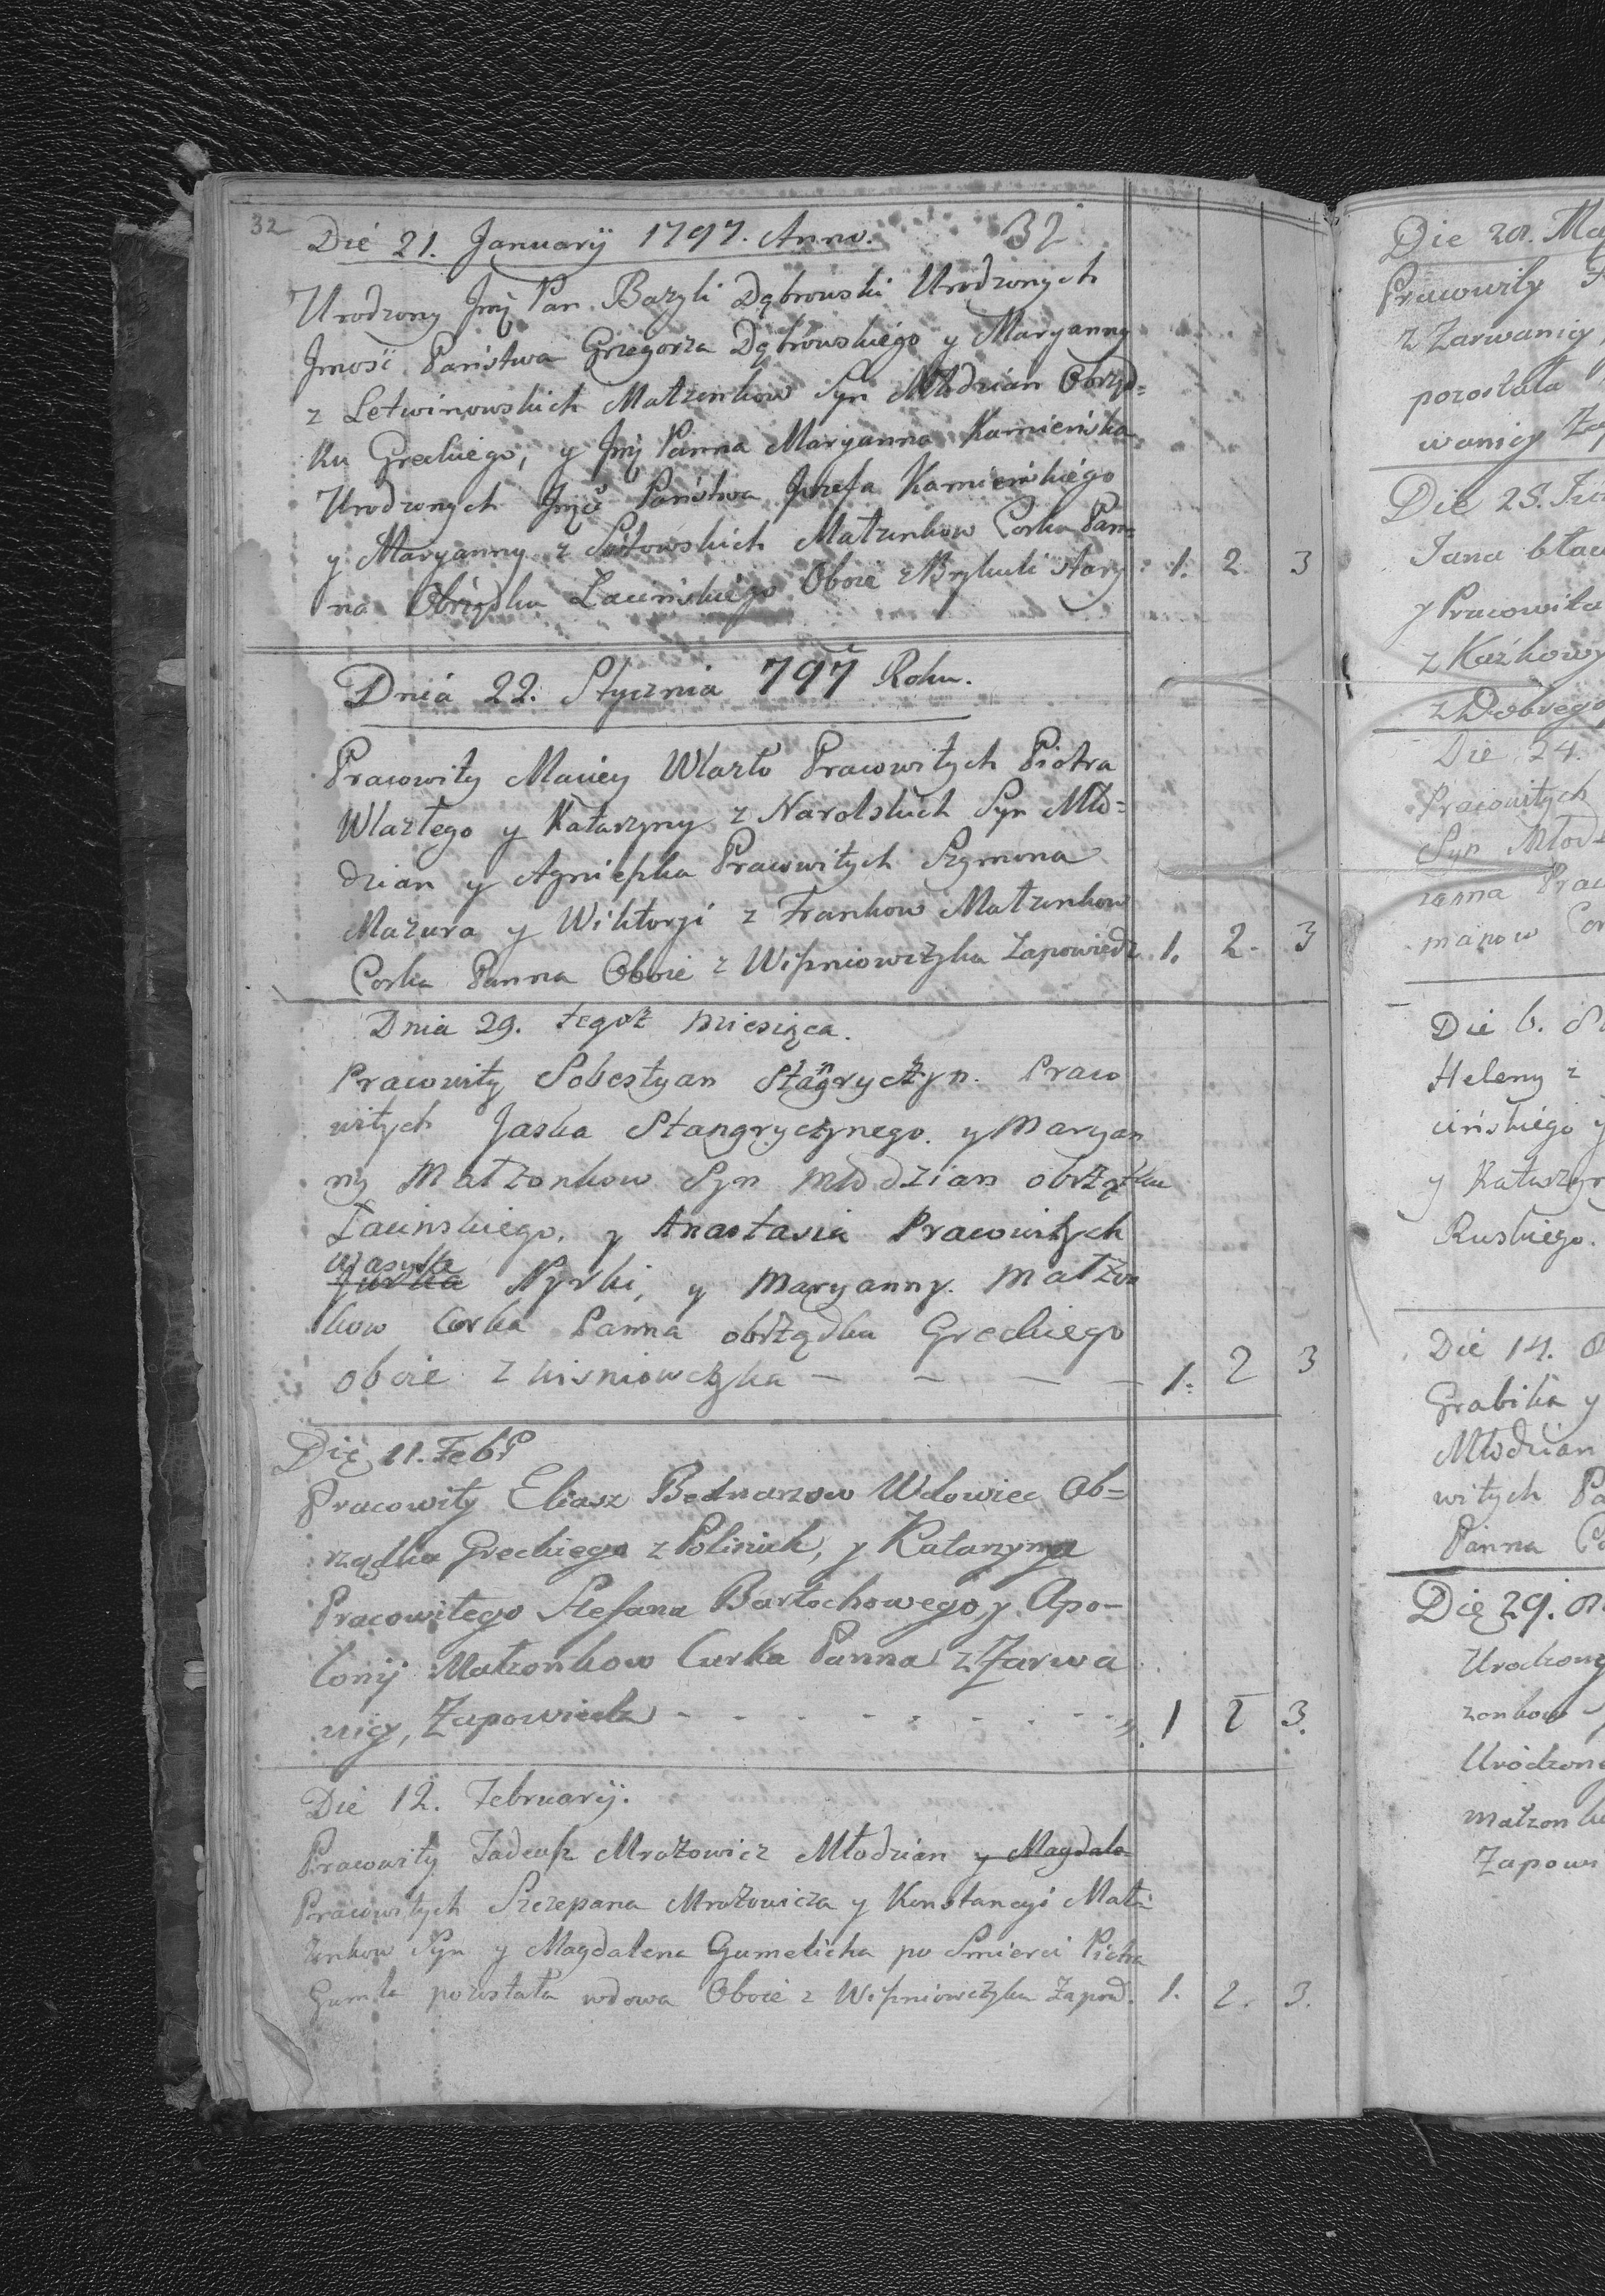 32
Die 21. Januarij 1797. Anno. 32
Urodzony Jmć Pan Bazyli Dąbrowski Urodzonych
Jmość Państwa Grzegorza Dąbrowskiego y Maryanny
z Letwinowskich Małzenkow Syn Młodzian Obrząd=
ku Greckiego, y Jmć Panna Maryanna Kamieńska
Urodzonych Państwa Jozefa Kamieńskiego
y Maryanny z Małzenkow Corka Pan=
na Obrządku Łacińskiego Oboie z Brykuli Stary 1. 2. 3
Dnia 22. Stycznia 797 Roku.
Pracowity Maciey Wlazło Pracowitych Piotra
Wlazłego y Katarzyny z Narolskich Syn Mło=
dzian y Agnieszka Pracowitych Szymona
Mazura y Wiktoryi z Frankow Małzenkow
Corka Panna Oboie z Wiszniowczyka Zapowiedz 1. 2. 3
Dnia 29. tegoż Miesiąca.
Pracowity Sobestyan Stangryczyn. Praco
witych Jaska Stangryczynego. y Maryan
ny Małzonkow Syn Młodzian obrządku
Łacinskiego, y Anastasia Pracowitych
Wasyla
Nyrki, y Maryanny. Małzon
kow Corka Panna obrządku Greckiego
oboie z Wisniowczyka — — — — 1. 2 3
Die 11. Febr
Pracowity Eliasz Bednarzow Wdowiec Ob=
rządku Greckiego z Polisiek, y Katarzyna
Pracowitego Stefana Bartochowego y Apo-
lonij Małzonkow Curka Panna z Zarwa
nicy, Zapowiedz - - - - - - - - 1 2 3.
Die 12. Februarij.
Pracowity Tadeusz Mrozowicz Młodzian y Magdale
Pracowitych Szczepana Mrozowicza y Konstancyi Mał=
zenkow Syn y Magdalena Gumelicka po Smierci Piotra
Gumela pozostała wdowa Oboie z Wiszniowczyka Zapow. 1. 2. 3.
Die 20. Ma
Pracowity
z Zarwanicy,
pozostała
wanicy Zap
Die 25.
Jana
y Pracowita
z
z Dobrego
Die 24.
Pracowitych
Syn Młod
Prac
Cor
Die 6.
Heleny z
cińskiego y
y Katarzyn
Ruskiego.
Die 14.
Grabika y
Młodzian
witych Pa
Panna Co
Die 29.
Urodzony
zonkow
Urodzone
małzonk
Zapow